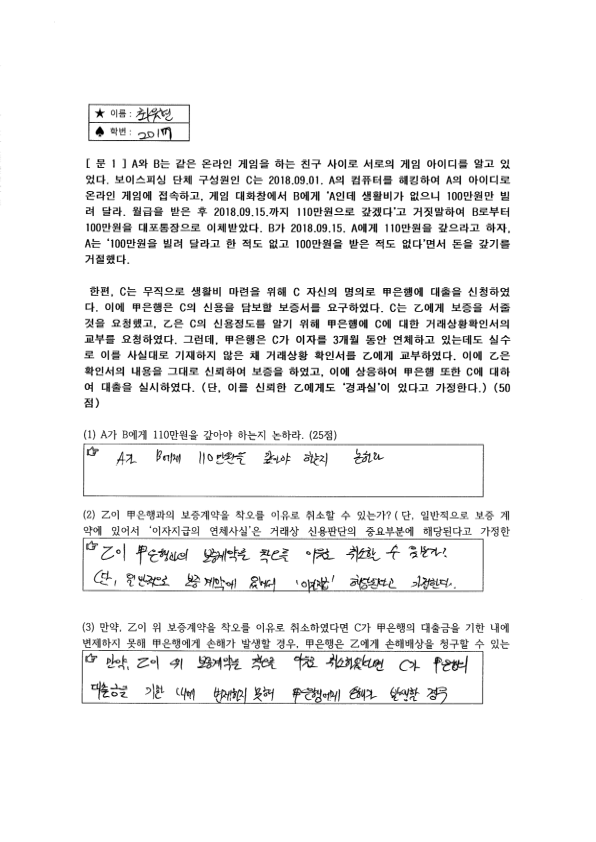 ★ 이름 : 최웃현
♠ 학번 : 2017
[ 문 1 ] A와 B는 같은 온라인 게임을 하는 친구 사이로 서로의 게임 아이디를 알고 있
었다. 보이스피싱 단체 구성원인 C는 2018.09.01. A의 컴퓨터를 해킹하여 A의 아이디로
온라인 게임에 접속하고, 게임 대화창에서 B에게 ‘A인데 생활비가 없으니 100만원만 빌
려 달라. 월급을 받은 후 2018.09.15.까지 110만원으로 갚겠다’고 거짓말하여 B로부터
100만원을 대포통장으로 이체받았다. B가 2018.09.15. A에게 110만원을 갚으라고 하자,
A는 ‘100만원을 빌려 달라고 한 적도 없고 100만원을 받은 적도 없다’면서 돈을 갚기를
거절했다.
한편, C는 무직으로 생활비 마련을 위해 C 자신의 명의로 甲은행에 대출을 신청하였
다. 이에 甲은행은 C의 신용을 담보할 보증서를 요구하였다. C는 乙에게 보증을 서줄
것을 요청했고, 乙은 C의 신용정도를 알기 위해 甲은행에 C에 대한 거래상황확인서의
교부를 요청하였다. 그런데, 甲은행은 C가 이자를 3개월 동안 연체하고 있는데도 실수
로 이를 사실대로 기재하지 않은 채 거래상황 확인서를 乙에게 교부하였다. 이에 乙은
확인서의 내용을 그대로 신뢰하여 보증을 하였고, 이에 상응하여 甲은행 또한 C에 대하
여 대출을 실시하였다. (단, 이를 신뢰한 乙에게도 ‘경과실’이 있다고 가정한다.) (50
점)
(1) A가 B에게 110만원을 갚아야 하는지 논하라. (25점)
A가 B에게 110만원을 갚아야 하는지 논하라
(2) 乙이 甲은행과의 보증계약을 착오를 이유로 취소할 수 있는가? ( 단, 일반적으로 보증 계
약에 있어서 ‘이자지급의 연체사실’은 거래상 신용판단의 중요부분에 해당된다고 가정한
乙이 甲은행과의 보증계약을 착오를 이유로 취소할 수 있는가?
(단, 일반적으로 보증계약에 있어서 해당된다고 가정한다.
(3) 만약, 乙이 위 보증계약을 착오를 이유로 취소하였다면 C가 甲은행의 대출금을 기한 내에
변제하지 못해 甲은행에게 손해가 발생할 경우, 甲은행은 乙에게 손해배상을 청구할 수 있는
만약, 乙이 위 보증계약을 착오를 이유로 취소하였다면 C가 甲은행의
대출금을 기한 내에 변제하지 못해 甲은행에게 손해가 발생할 경우